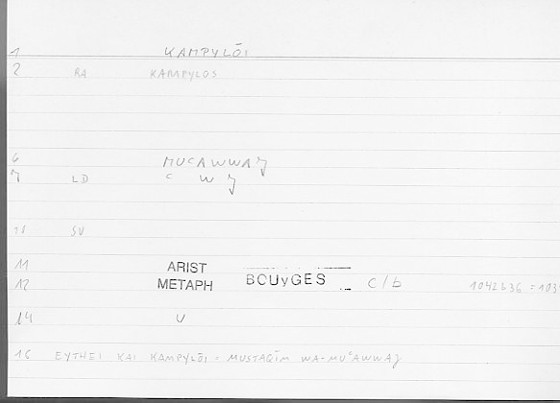 1 KAMPYLŌI
2 RA KAMPYLOS
6 MUCAWWAJ
7 LD C W J
11 SV
11 ARIST BOUyGES c/b
12 METAPH 1042b36 = 1039
14 U
16 EYTHEI KAI KAMPYLŌI = MUSTAQĪM WA-MUʿAWWAJ